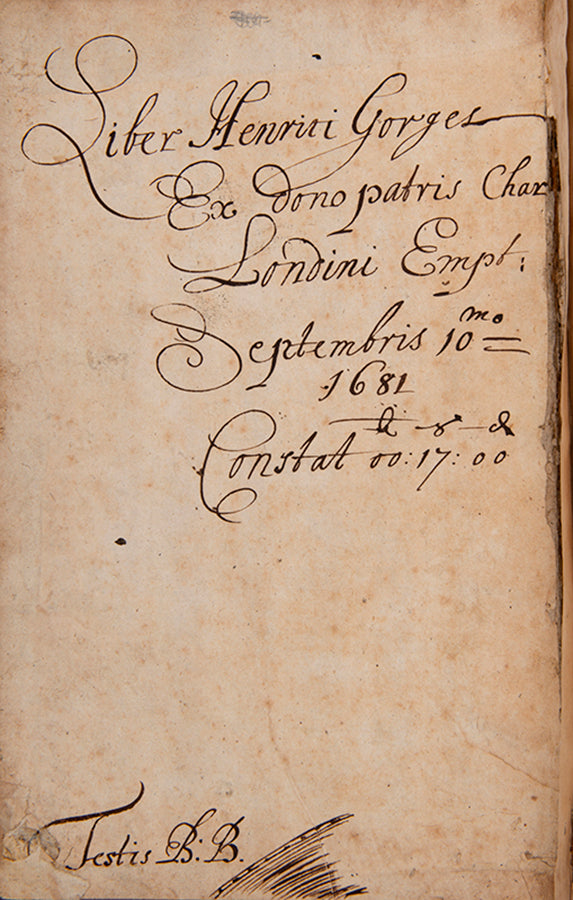 Liber Henrici Gorges
Ex dono patris Char
Londini Empt:
Septembris 10mo
1681
£ s d
Constat 00:17:00
Testis B:B.